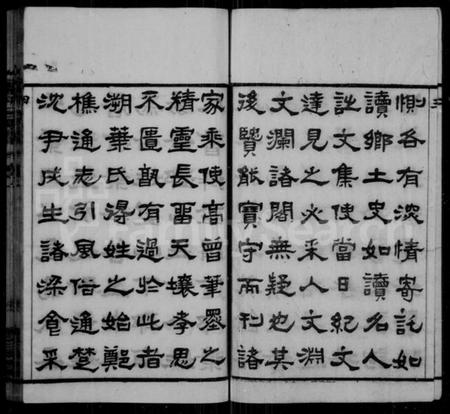 惻各有深情寄託如
讀鄉土史如讀名人
詩文集使當日紀文
達見之必采入文淵
文瀾諸閣無疑也其
後賢能寶守而刊諸
家乘使高曾筆墨之
精靈長留天壤孝思
不匱孰有過於此者
溯葉氏得姓之始鄭
樵通志引風俗通楚
沈尹戌生諸梁食采
FamilySearch